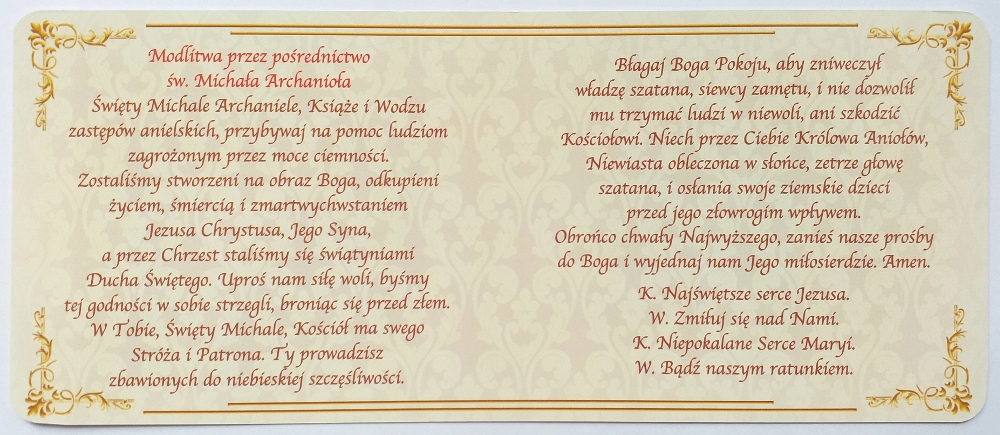 Modlitwa przez pośrednictwo
św. Michała Archanioła
Święty Michale Archaniele, Książe i Wodzu
zastępów anielskich, przybywaj na pomoc ludziom
zagrożonym przez moce ciemności.
Zostaliśmy stworzeni na obraz Boga, odkupieni
życiem, śmiercią i zmartwychwstaniem
Jezusa Chrystusa, Jego Syna,
a przez Chrzest staliśmy się świątyniami
Ducha Świętego. Uproś nam siłę woli, byśmy
tej godności w sobie strzegli, broniąc się przed złem.
W Tobie, Święty Michale, Kościół ma swego
Stróża i Patrona. Ty prowadzisz
zbawionych do niebieskiej szczęśliwości.
Błagaj Boga Pokoju, aby zniweczył
władzę szatana, siewcy zamętu, i nie dozwolił
mu trzymać ludzi w niewoli, ani szkodzić
Kościołowi. Niech przez Ciebie Królowa Aniołów,
Niewiasta obleczona w słońce, zetrze głowę
szatana, i osłania swoje ziemskie dzieci
przed jego złowrogim wpływem.
Obrońco chwały Najwyższego, zanieś nasze prośby
do Boga i wyjednaj nam Jego miłosierdzie. Amen.
K. Najświętsze serce Jezusa.
W. Zmiłuj się nad Nami.
K. Niepokalane Serce Maryi.
W. Bądź naszym ratunkiem.